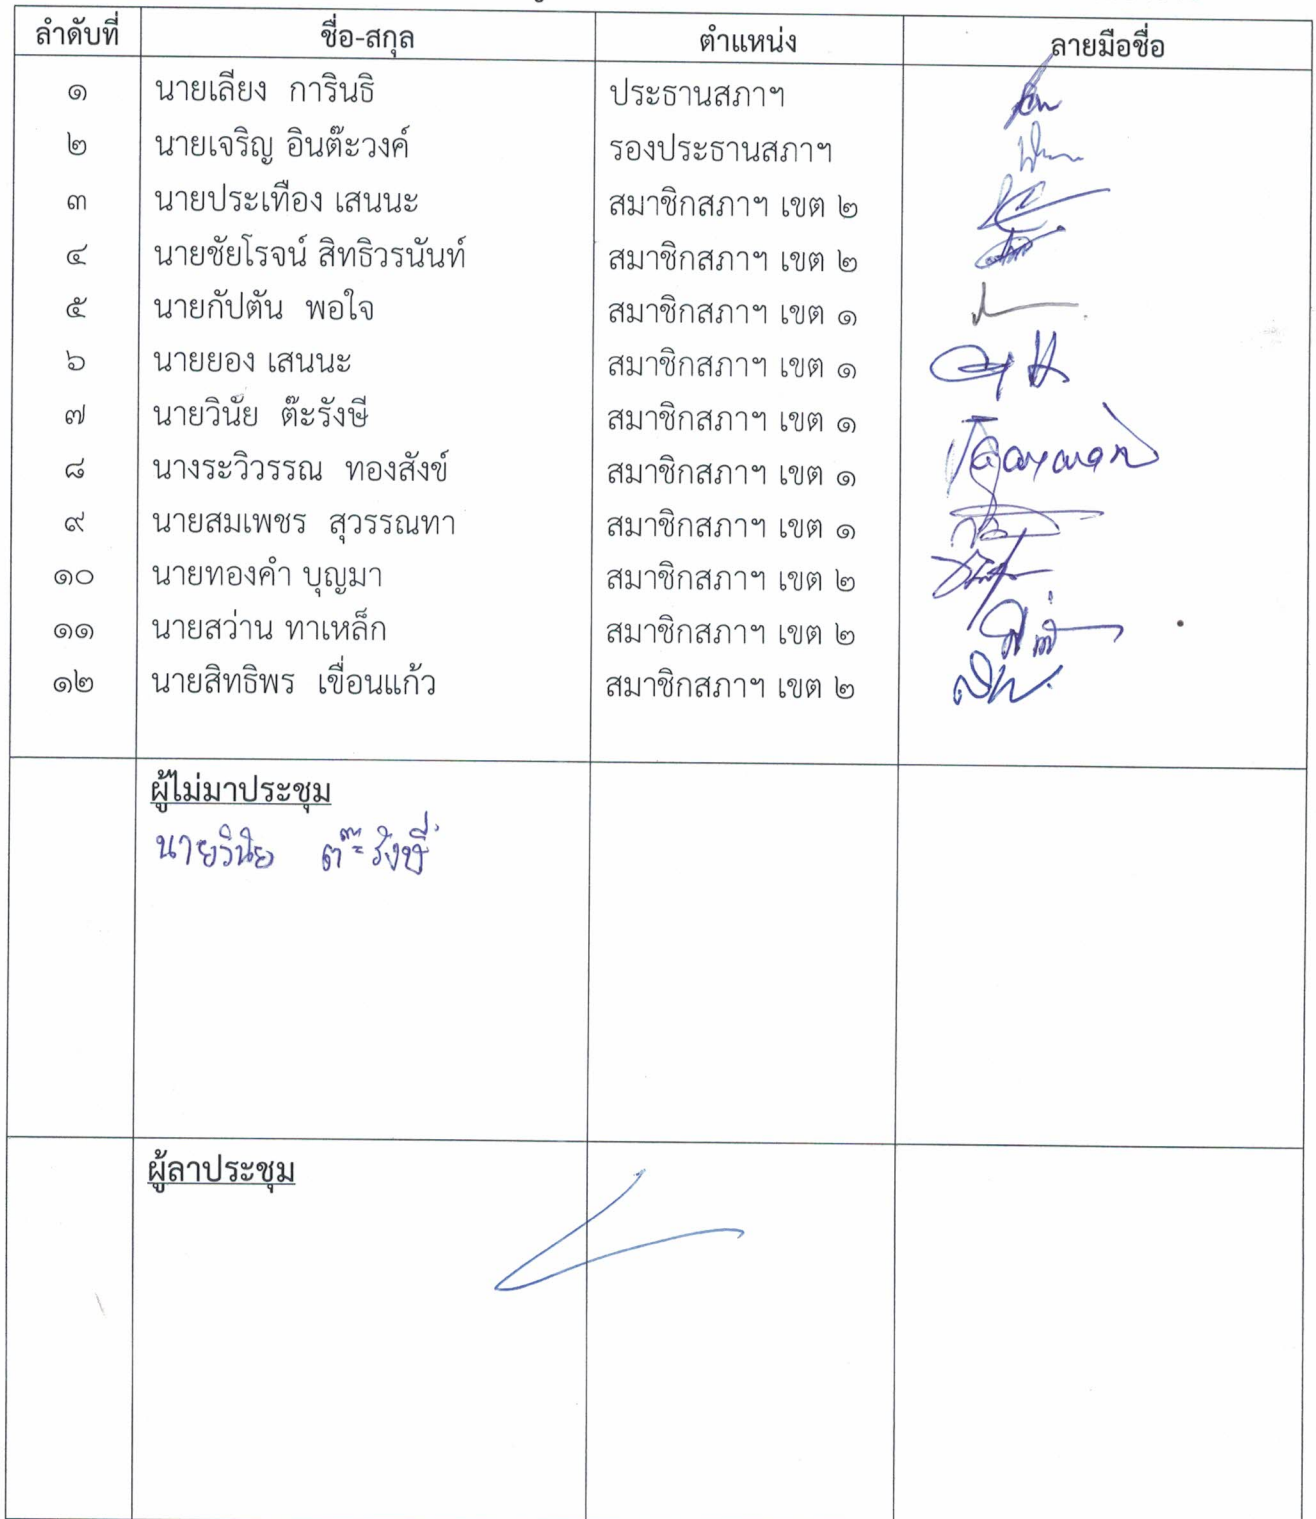 ลำดับที่ ชื่อ-สกุล ตำแหน่ง ลายมือชื่อ
๑ นายเลียง การินธิ ประธานสภาฯ
๒ นายเจริญ อินต๊ะวงค์ รองประธานสภาฯ
๓ นายประเทือง เสนนะ สมาชิกสภาฯ เขต ๒
๔ นายชัยโรจน์ สิทธิวรนันท์ สมาชิกสภาฯ เขต ๒
๕ นายกัปตัน พอใจ สมาชิกสภาฯ เขต ๑
๖ นายยอง เสนนะ สมาชิกสภาฯ เขต ๑
๗ นายวินัย ต๊ะรังษี สมาชิกสภาฯ เขต ๑
๘ นางระวิวรรณ ทองสังข์ สมาชิกสภาฯ เขต ๑
๙ นายสมเพชร สุวรรณทา สมาชิกสภาฯ เขต ๑
๑๐ นายทองคำ บุญมา สมาชิกสภาฯ เขต ๒
๑๑ นายสว่าน ทาเหล็ก สมาชิกสภาฯ เขต ๒
๑๒ นายสิทธิพร เขื่อนแก้ว สมาชิกสภาฯ เขต ๒
ผู้ไม่มาประชุม
นายวินัย ต๊ะรังษี
ผู้ลาประชุม